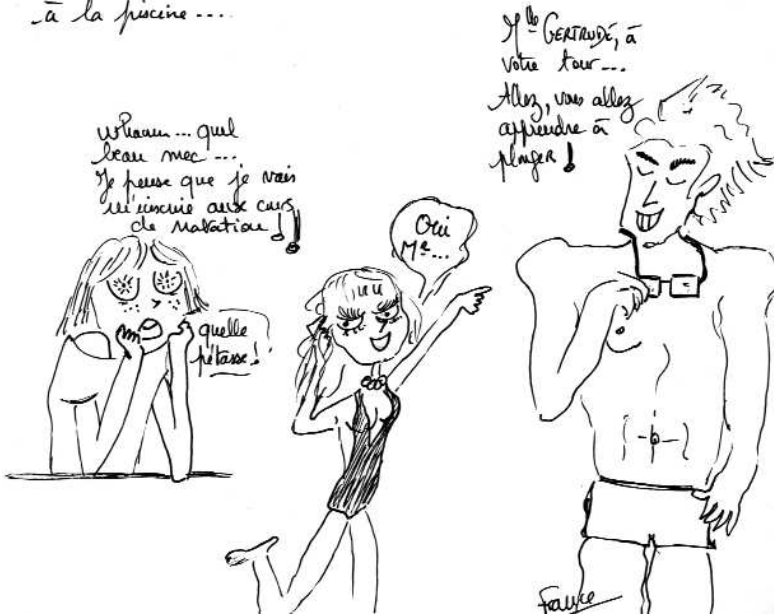 à la piscine....
Mlle GERTRUDE, à
votre tour...
Allez, vous allez
apprendre à
plonger !
whaouu... quel
beau mec...
Je pense que je vais
m'inscrire aux cours
de natation !!
Oui
Me...
quelle
pétasse !
France